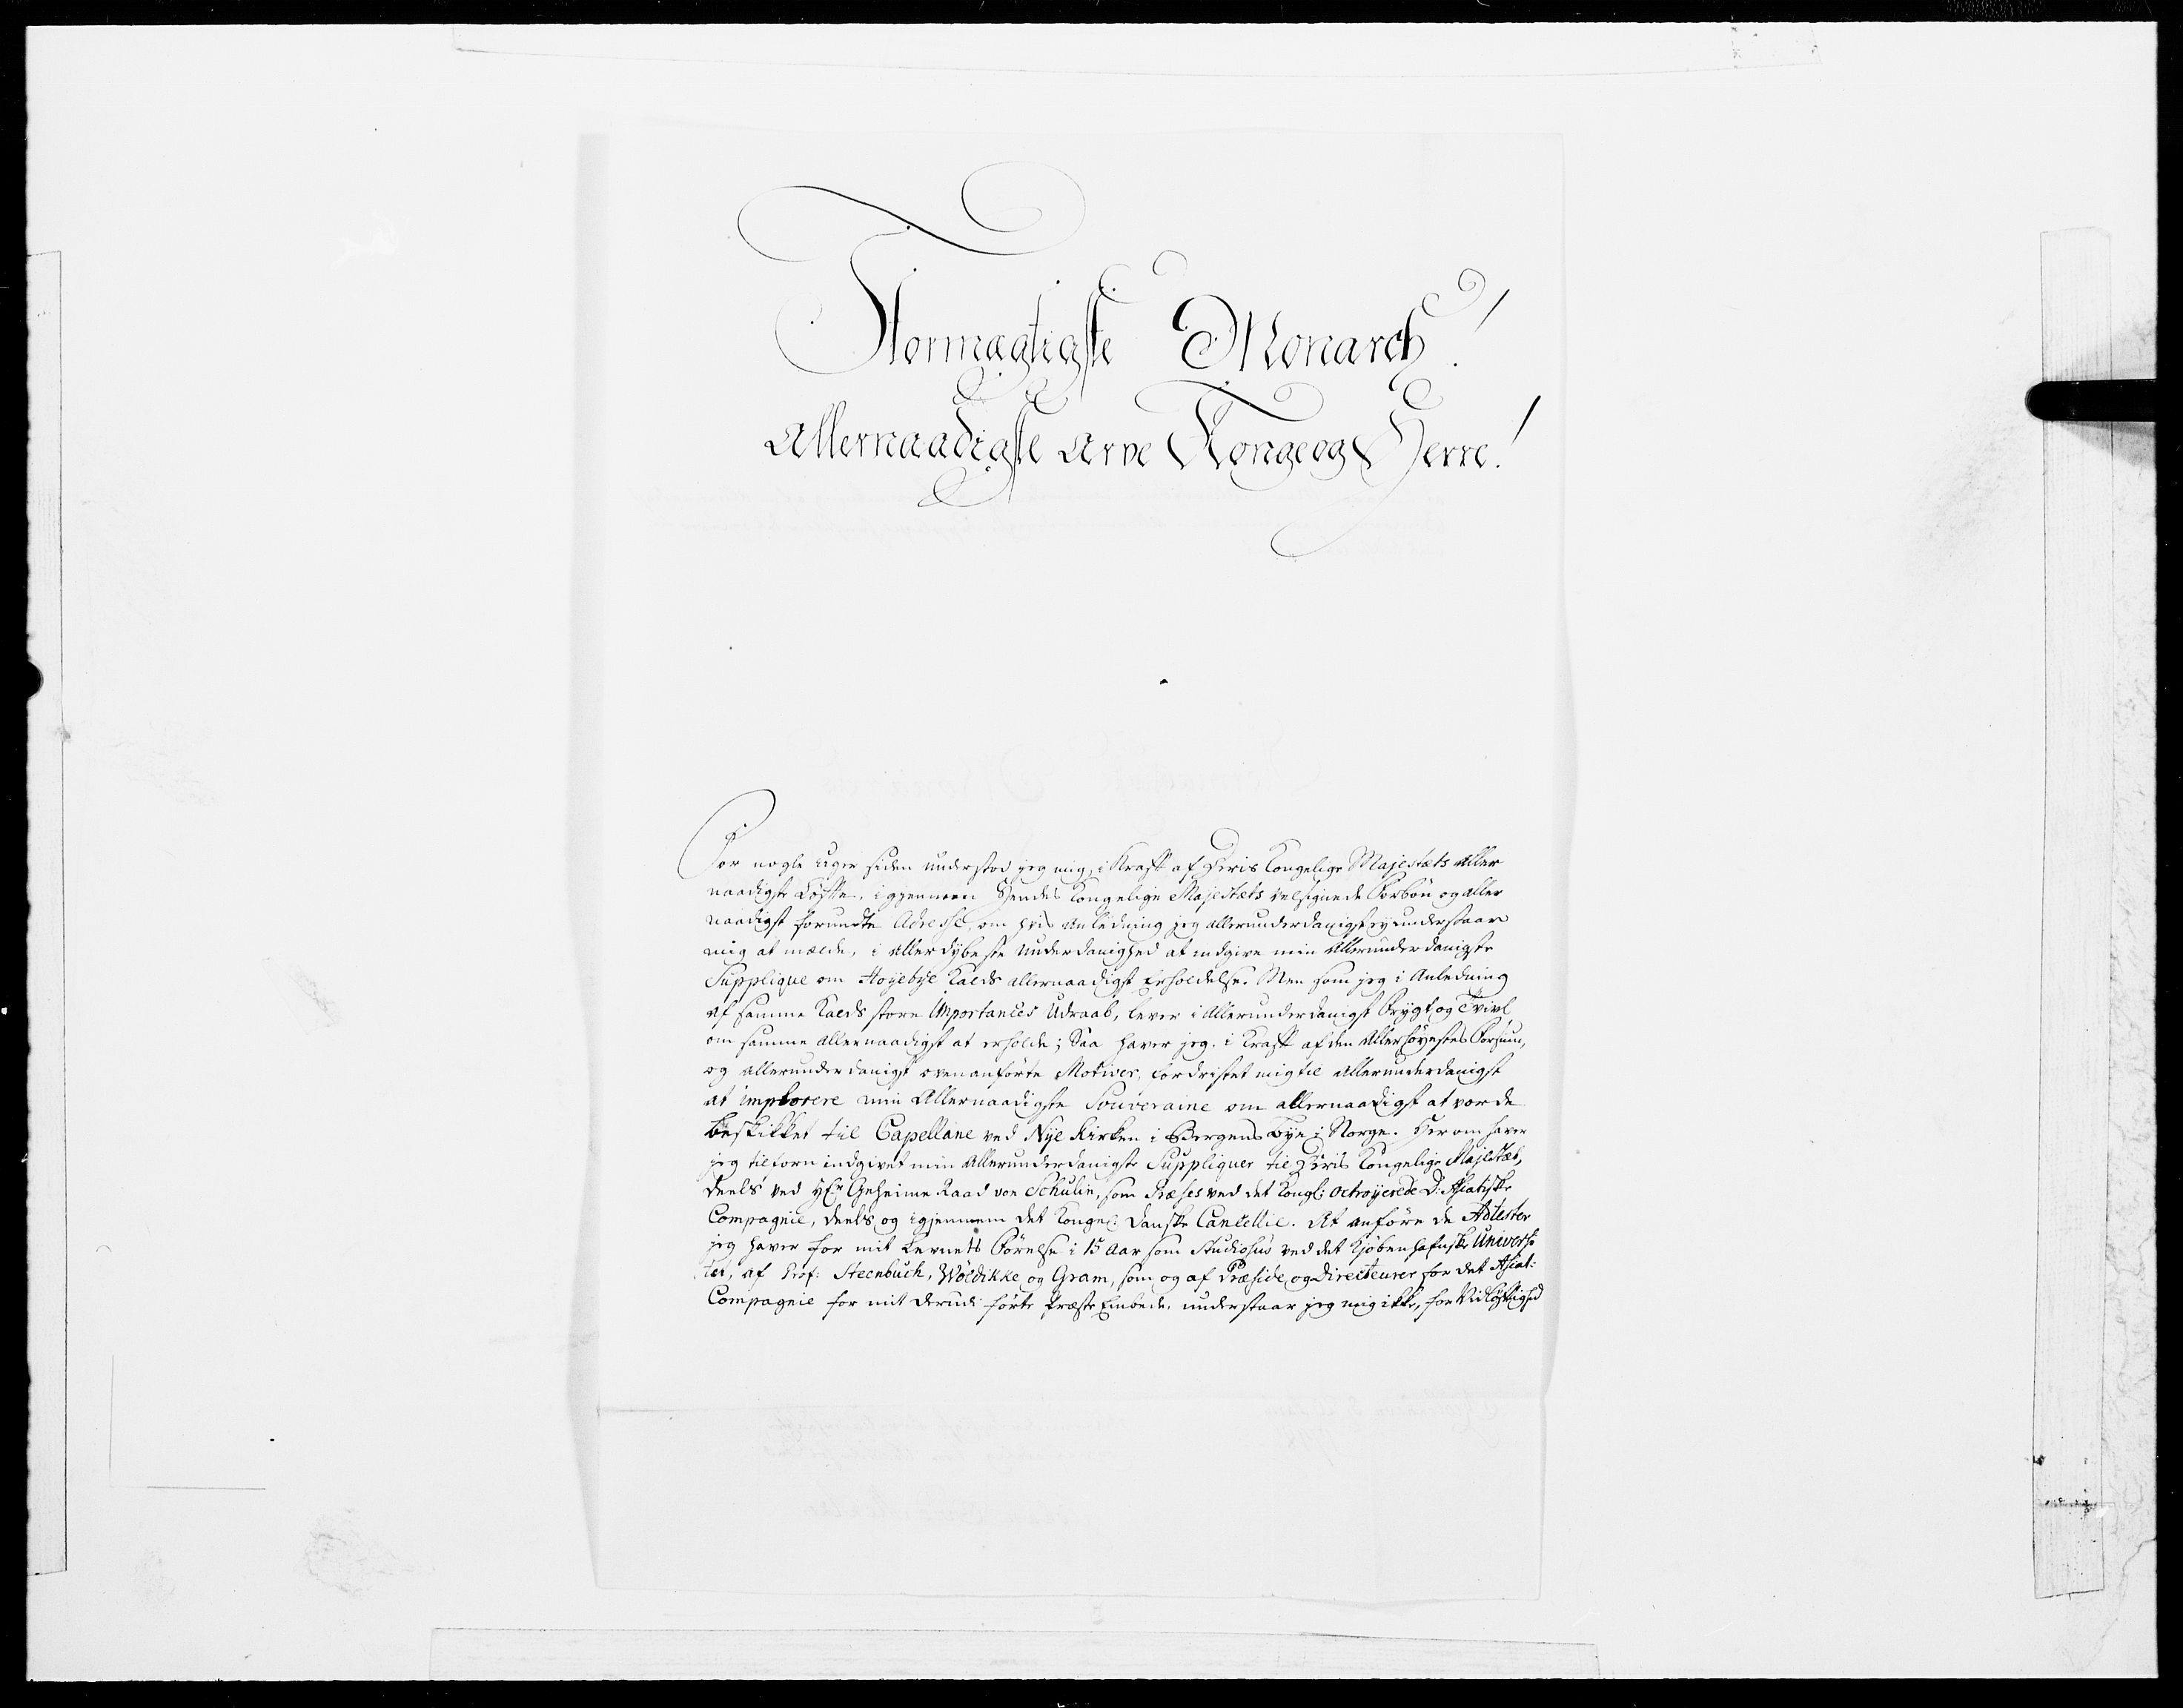 Stormægtigste Monarch!
Allernaadigste Arve Konge og Herre!
For nogle Uger siden understod jeg mig, i Kraft af Deris Kongelige Majestæts Aller
naadigste Løfte, igjennem Hendes Kongelige Majestæts velsignede Forbøn og aller
naadigst forundte Adresse, om hvis Anledning jeg allerunderdanigst ey understaar
mig at melde, i allerdybeste Underdanighed at indgive min Allerunderdanigste
Supplique om Høyebye Kalds allernaadigst Erholdelse. Men som jeg i Anledning
af samme Kalds store Importances Udraab, lever i Allerunderdanigst Frygt og Tvivl
om samme allernaadigst at erholde; Saa haver jeg i Kraft af den Allerhøyestes Forsiun,
og allerunderdanigst ovenanførte Motiver, fordristet mig til allerunderdanigst
at implorere min Allernaadigste Souveraine om allernaadigst at vorde
beskikket til Capellane ved Nye Kirken i Bergens Bye i Norge. Herom haver
jeg tilforn indgivet min Allerunderdanigste Suppliquer til Deris Kongelige Majestæt,
deels ved Hr Geheime Raad von Schulin, som Præses ved det Kongl: Octroyerede D: Asiatiske
Compagnie, deels og igjennem det Kongel: Danske Cancellie. At anføre de Attester
jeg haver for mit Levnets Førelse i 15 Aar som Studiosus ved det Kjøbenhafnske Universi
tet, af Prof: Steenbuch, Wøldikke og Gram, som og af Præside og Directeurer for det Asiat:
Compagnie for mit derudi førte Præste Embede, understaar jeg mig ikke, for Vidløftighed